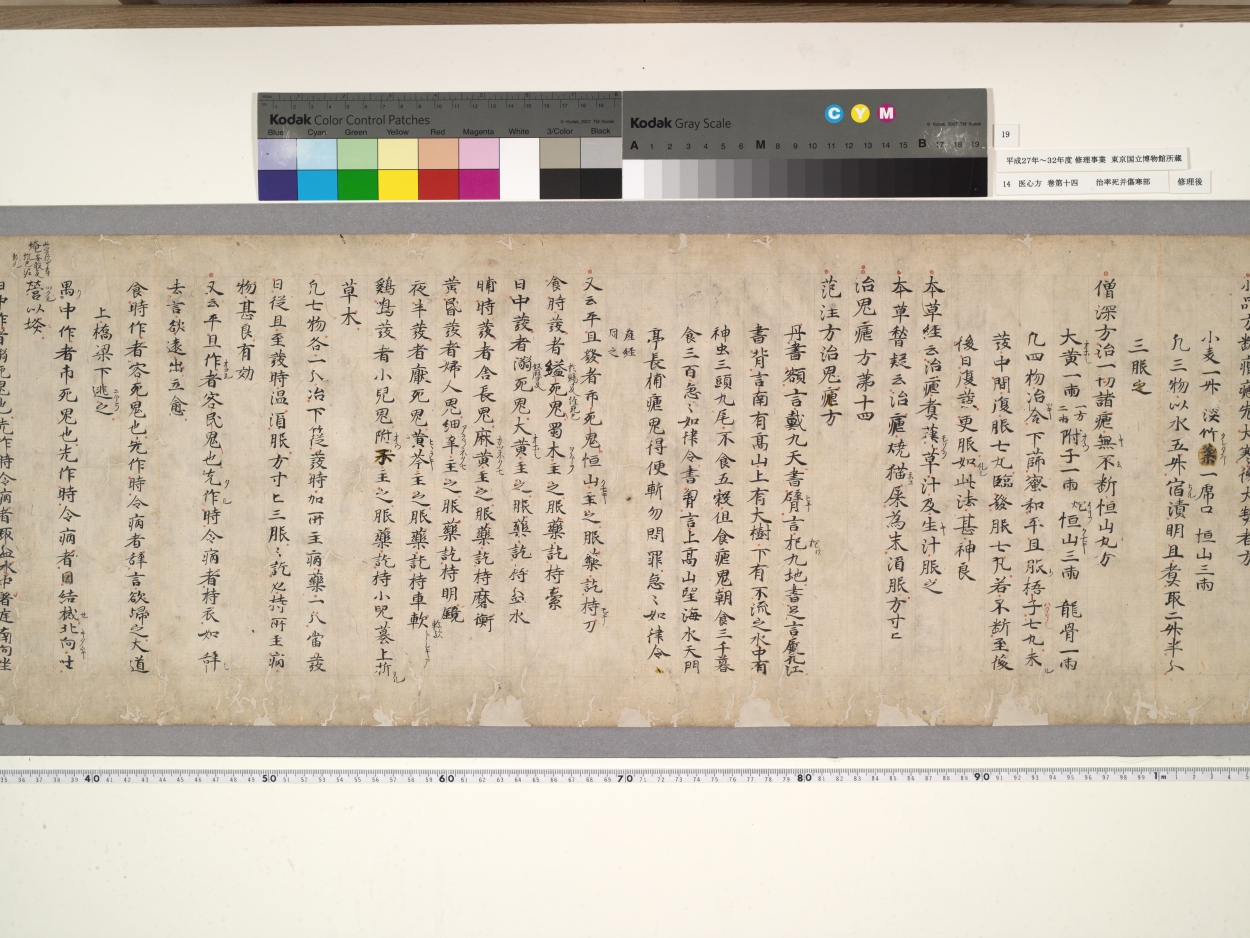 Kodak Color Control Patches
© Kodak, 2007 TM: Kodak
Blue Cyan Green Yellow Red Magenta White 3/Color Black
Kodak Gray Scale
C Y M
© Kodak, 2007 TM: Kodak
A 1 2 3 4 5 6 M 8 9 10 11 12 13 14 15 B 17 18 19
19
平成27年〜32年度 修理事業 東京国立博物館所蔵
14 医心方 巻第十四 治卒死并傷寒部
修理後
小麦一升 淡竹葉一席口 恒山三兩
凡三物以水五升宿漬明旦煮取二升半分
三服之
僧深方治一切諸瘧無不断恒山丸方
大黄一兩 一方二兩 附子一兩 炮 恒山三兩 龍骨一兩
凡四物冶合下篩蜜和平旦服梧子七丸未
發中間復服七丸臨發服七丸若不断至後
後日復發更服如此法甚神良
本草経云治瘧煮葎草汁及生汁服之
本草稽疑云治瘧焼猫屎為末酒服方寸匕
治鬼瘧方第十四
范汪方治鬼瘧方
丹書額言戴九天書臂言抱九地書足言履九江
書背言南有高山上有大樹下有不流之水中有
神虫三頭九尾不食五穀但食瘧鬼朝食三千暮
食三百急〻如律令書胸言上高山望海水天門
亭長捕瘧鬼得便斬勿問罪急〻如律令
産経同之
又云平旦發者市死鬼恒山主之服藥訖持刀
食時發者縊死鬼蜀木主之服藥訖持索
日中發者溺死鬼大黄主之服藥訖持盆水
晡時發者舎長鬼麻黄主之服藥訖持磨衡
黄昏發者婦人鬼細辛主之服藥訖持明鏡
夜半發者廉死鬼黄芩主之服藥訖持車軟
鷄鳴發者小兒鬼附子主之服藥訖持小兒墓上折
草木
凡七物各一分冶下篩發時加所主病藥二分當發
日從旦至發時温酒服方寸匕三服〻訖也持所主病
物甚良有効
又云平旦作者客民鬼也先作時令病者持衣如辞
去言欲遠出立愈
食時作者客死鬼也先作時令病者辞言欲帰之大道
上橋梁下逃之
禺中作者市死鬼也先作時令病者因結械北向吐
營以塚
40 50 60 70 80 90 1m